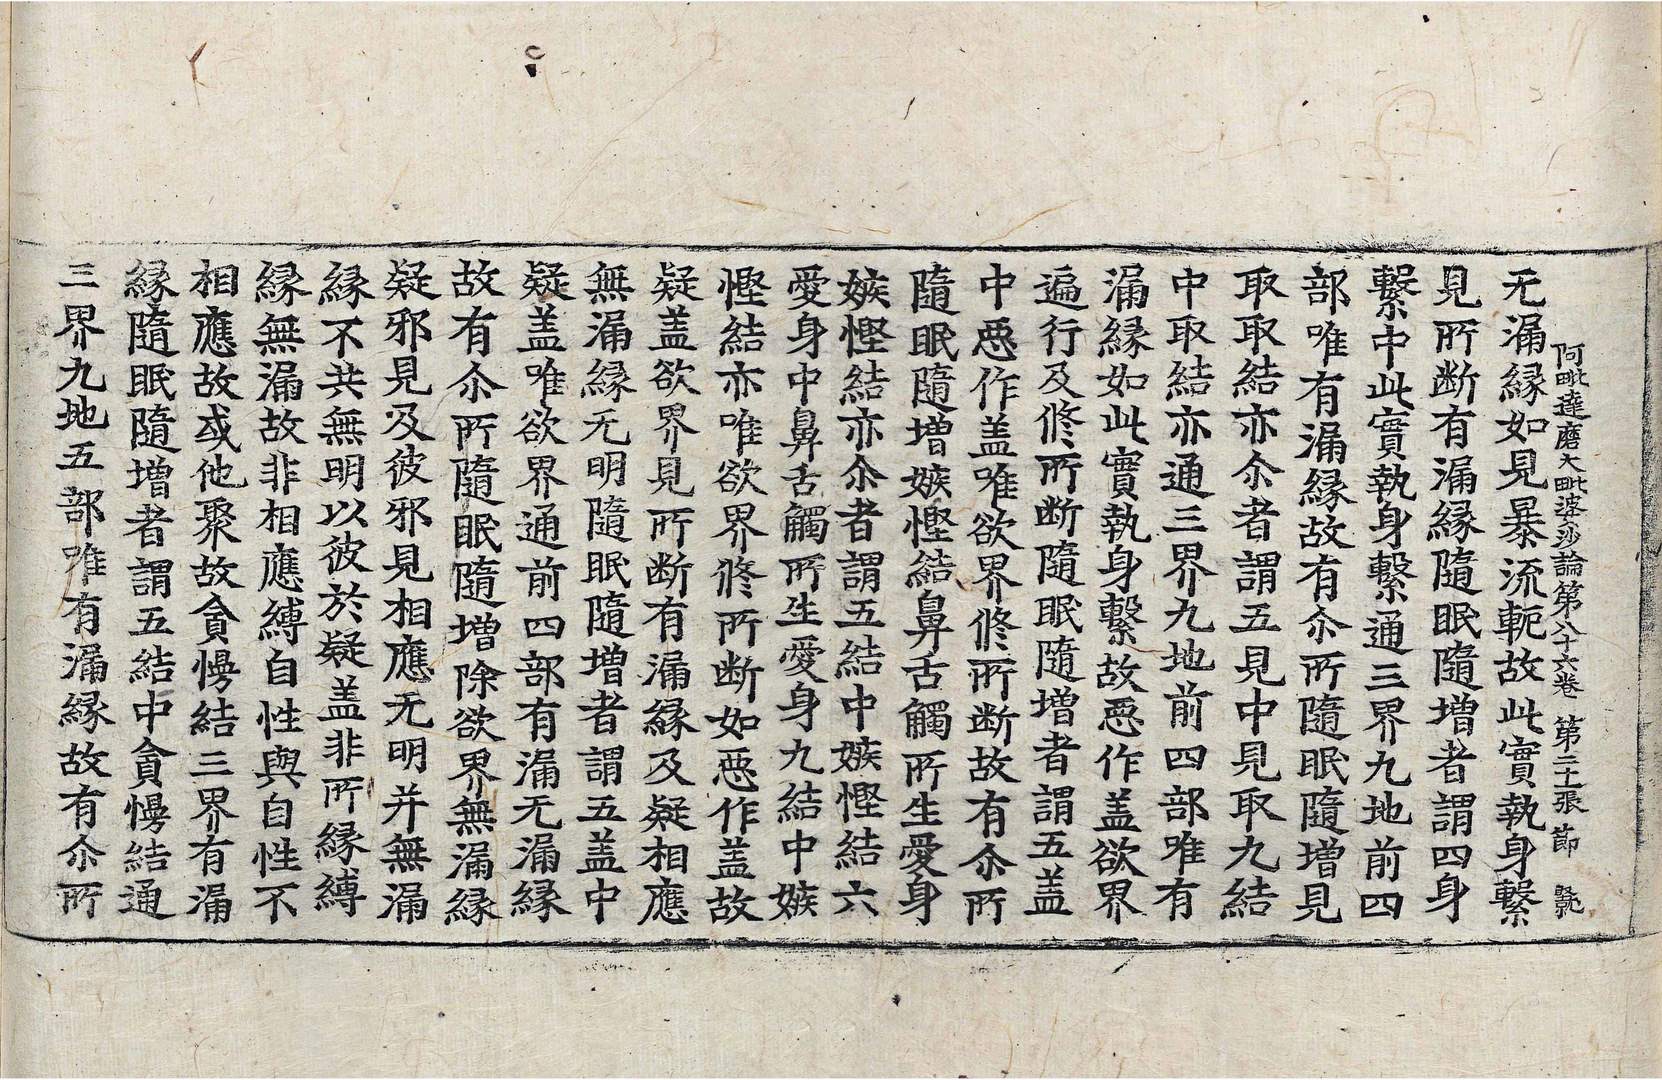 阿毗達磨大毗婆沙論第八十六卷 第二十一張 節
无漏縁如見暴流軛故此實執身繫
見所断有漏縁隨眠隨增者謂四身
繫中此實執身繫通三界九地前四
部唯有漏縁故有尒所隨眠隨增見
取取結亦尒者謂五見中見取九結
中取結亦通三界九地前四部唯有
漏縁如此實執身繫故悪作盖欲界
遍行及修所断隨眠隨增者謂五盖
中悪作盖唯欲界修所断故有尒所
隨眠隨增嫉慳結鼻舌觸所生愛身
嫉慳結亦尒者謂五結中嫉慳結六
愛身中鼻舌觸所生愛身九結中嫉
慳結亦唯欲界修所断如悪作盖故
疑盖欲界見所断有漏縁及疑相應
無漏縁无明隨眠隨增者謂五盖中
疑盖唯欲界通前四部有漏无漏縁
故有尒所隨眠隨增除欲界無漏縁
疑邪見及彼邪見相應无明并無漏
縁不共無明以彼於疑盖非所縁縛
縁無漏故非相應縛自性與自性不
相應故或他聚故貪慢結三界有漏
縁隨眠隨增者謂五結中貪慢結通
三界九地五部唯有漏縁故有尒所